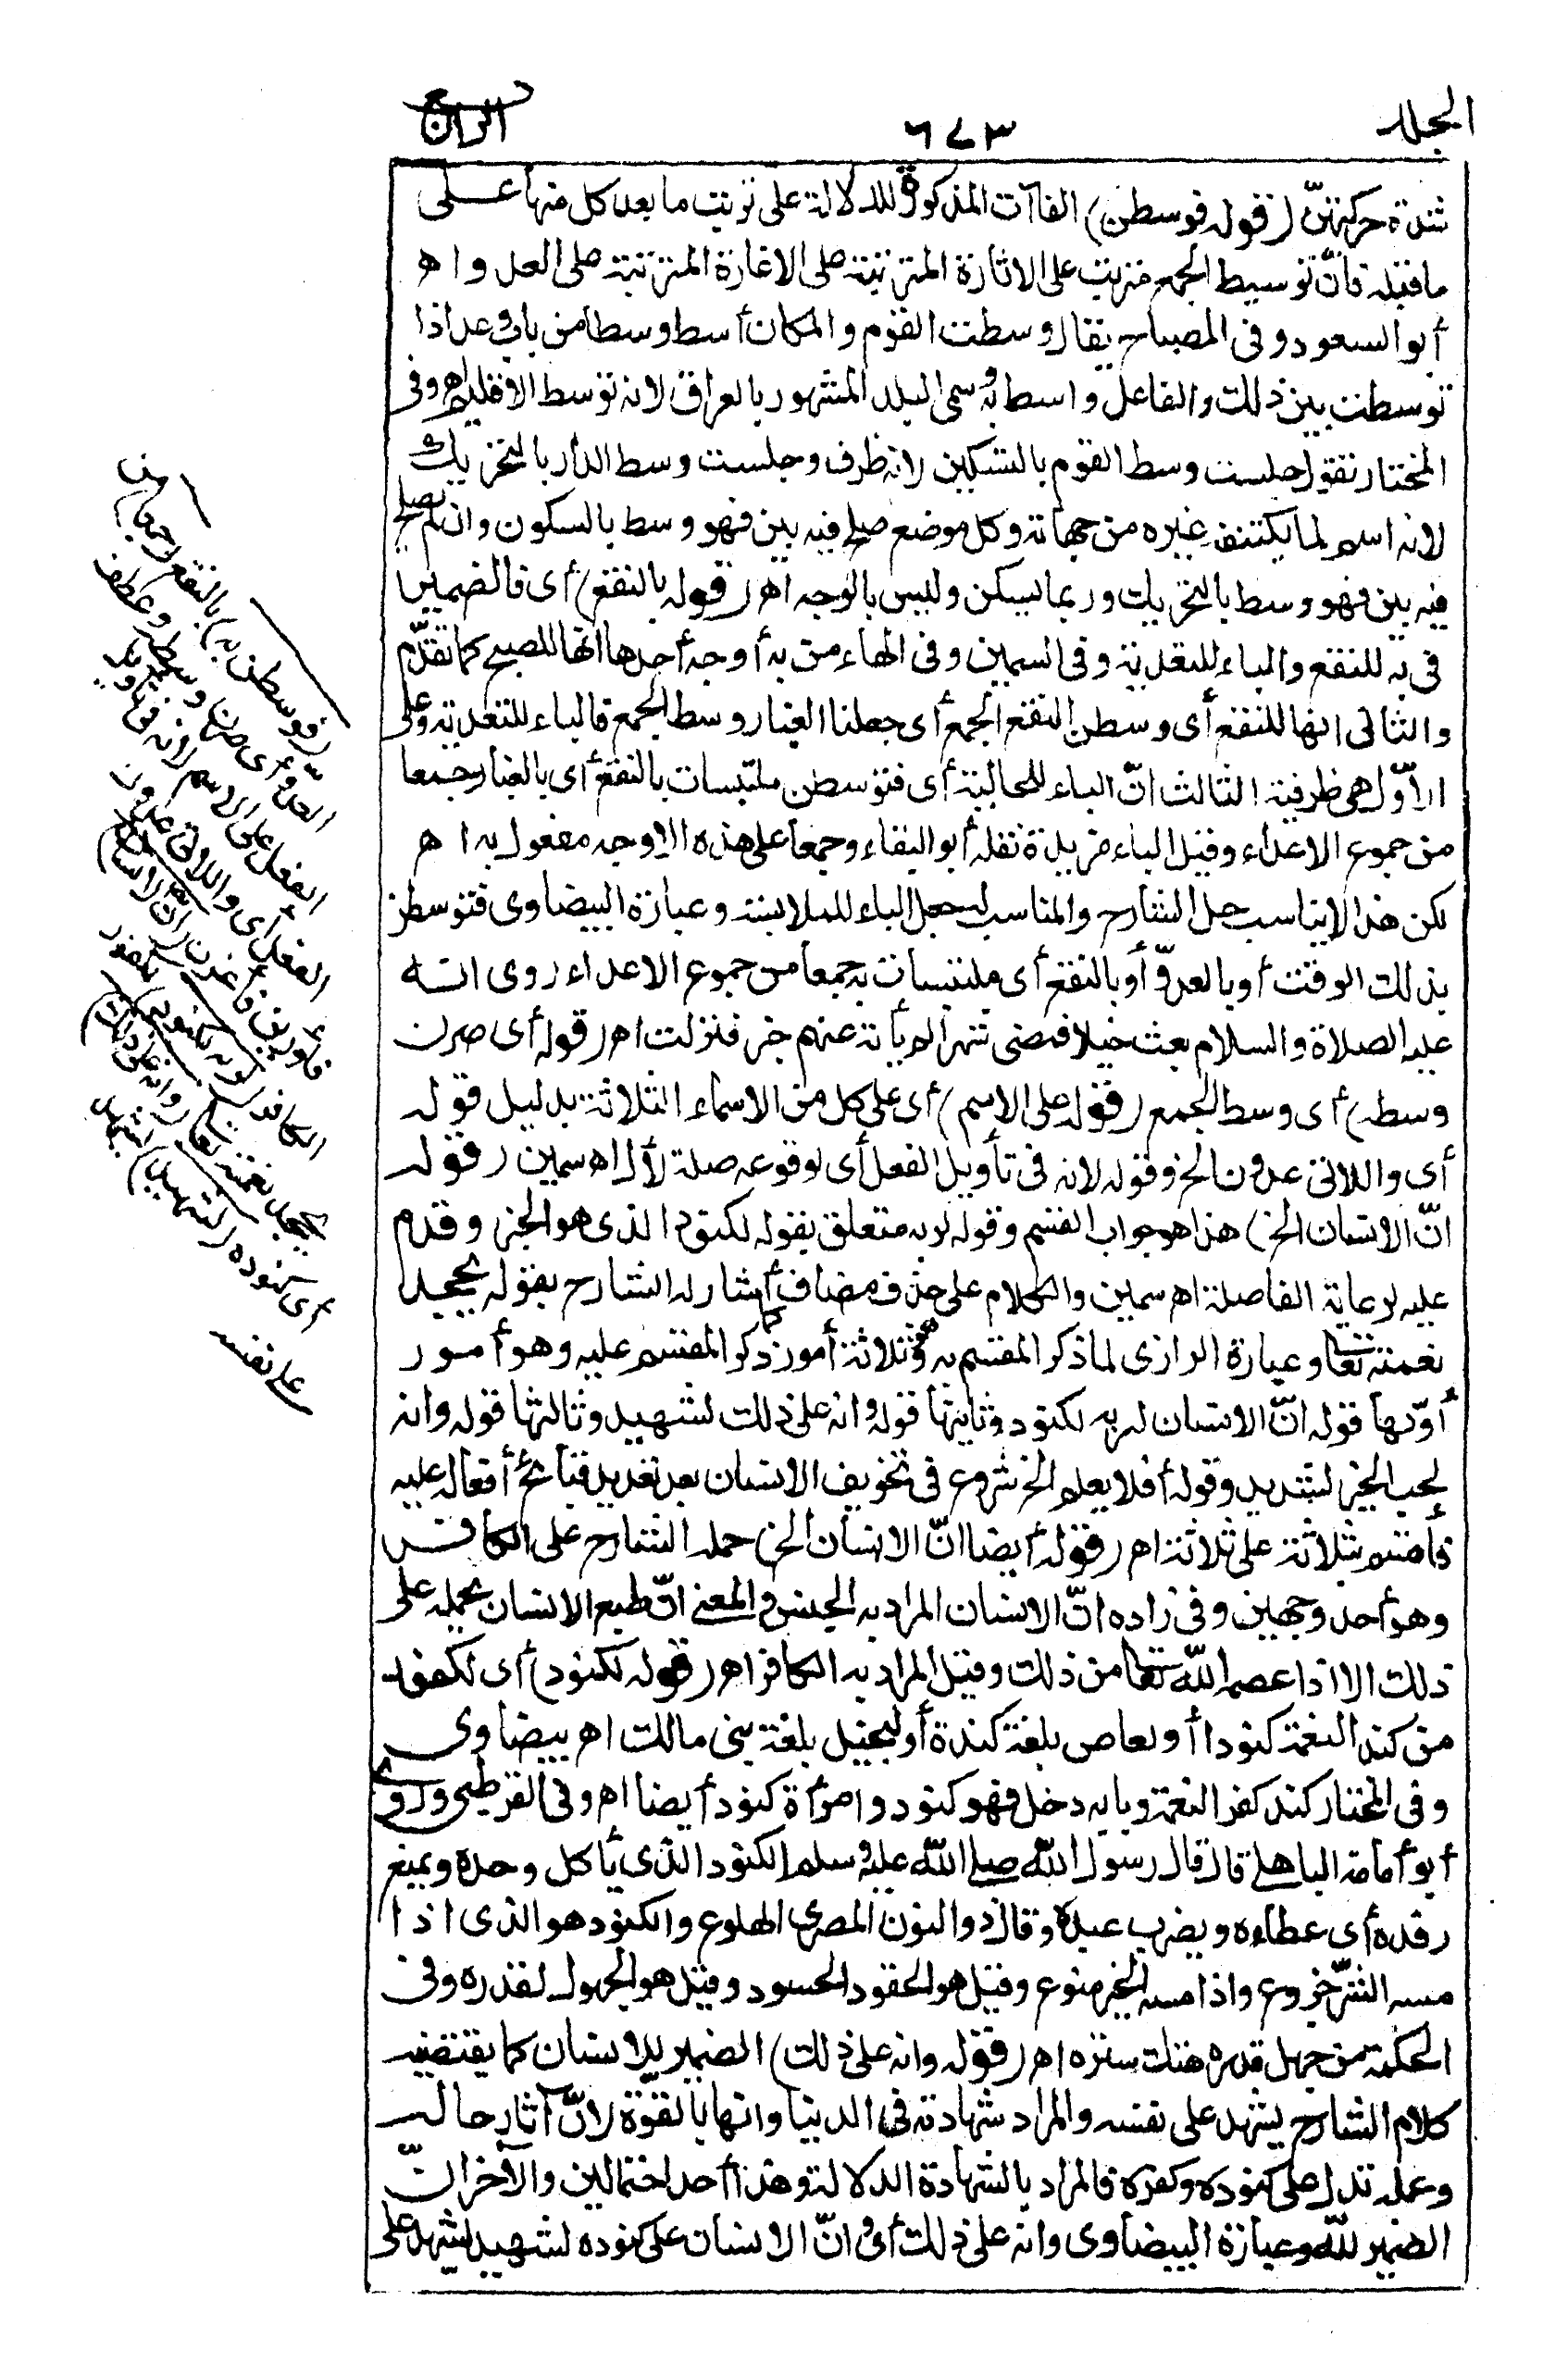 المجلد
٦٧٣
الرابع
شدة حركتهنّ (قوله فوسطن) الفاآت المذكورة للدلالة على ترتيب ما بعد كل منها على
ما قبله فانّ توسيط الجمع مترتب على الاثارة المترتبة على الاغارة المترتبة على العدو اه
أبو السعود وفى المصباح يقال وسطت القوم والمكان أسط وسطا من باب وعد اذا
توسطت بين ذلك والفاعل واسط وبه سمى البلد المشهور بالعراق لانه توسط الاقليم اه وفى
المختار تقول جلست وسط القوم بالتسكين لانه ظرف وجلست وسط الدار بالتحريك
لانه اسم لما يكتنف غيره من جهاته وكل موضع صلح فيه بين فهو وسط بالسكون وان لم يصلح
فيه بين فهو وسط بالتحريك وربما يسكن وليس بالوجه اه (قوله بالنقع) أى فالضمير
فى به للنقع والباء للتعدية وفى السمين وفى الهاء من به أوجه أحدها انها للصبح كما تقدّم
والثانى انها للنقع أى وسطن النقع الجمع أى جعلنا الغبار وسط الجمع فالباء للتعدية وعلى
الأوّل هى ظرفية الثالث انّ الباء للحالية أى فتوسطن ملتبسات بالنقع أى بالغبار جمعا
من جموع الاعداء وقيل الباء مزيدة نقله أبو البقاء وجمعا على هذه الاوجه مفعول به اه
لكن هذا لا يناسب حل الشارح والمناسب له جعل الباء للملابسة وعبارة البيضاوى فتوسطن
بذلك الوقت أو بالعدوّ أو بالنقع أى ملتبسات به جمعا من جموع الاعداء روى انه
عليه الصلاة والسلام بعث خيلا فمضى شهر لم يأته عنهم خبر فنزلت اه (قوله أى صرن
وسطه) أى وسط الجمع (قوله على الاسم) أى على كل من الاسماء الثلاثة بدليل قوله
أى واللاتى عدون الخ وقوله لانه فى تأويل الفعل أى لوقوعه صلة لأل اه سمين (قوله
انّ الانسان الخ) هذا هو جواب القسم وقوله لربه متعلق بقوله لكنود الذى هو الخبر وقدم
عليه لرعاية الفاصلة اه سمين والكلام على حذف مضاف كما أشار له الشارح بقوله بجحد
نعمته تعالى وعبارة الرازى لما ذكر المقسم به وهو ثلاثة أمور ذكر المقسم عليه وهو أمور
أوّلها قوله انّ الانسان لربه لكنود وثانيها قوله وانه على ذلك لشهيد وثالثها قوله وانه
لحب الخير لشديد وقوله أفلا يعلم الخ شروع فى تخويف الانسان بعد تعديد قبائح أفعاله عليه
فأقسم بثلاثة على ثلاثة اه (قوله أيضا انّ الانسان الخ) حمله الشارح على الكافر
وهو أحد وجهين وفى زاده انّ الانسان المراد به الجنس والمعنى انّ طبع الانسان يحمله على
ذلك الا اذا عصمه اللّه تعالى من ذلك وقيل المراد به الكافر اه (قوله لكنود) أى لكفور
من كند النعمة كنودا أو لعاص بلغة كندة أو لبخيل بلغة بنى مالك اه بيضاوى
وفى المختار كند كفر النعمة وبابه دخل فهو كنود وامرأة كنود أيضا اه وفى القرطبى وروى
أبو أمامة الباهلى قال قال رسول اللّه صلى اللّه عليه وسلم الكنود الذى يأكل وحده ويمنع
رفده أى عطاءه ويضرب عبده وقال ذو النون المصرى الهلوع والكنود هو الذى اذا
مسه الشرّ جزوع واذا مسه الخير منوع وقيل هو الحقود الحسود وقيل هو الجهول لقدره وفى
الحكمة من جهل قدره هتك ستره اه (قوله وانه على ذلك) الضمير للانسان كما يقتضيه
كلام الشارح يشهد على نفسه والمراد شهادته فى الدنيا وانها بالقوّة لانّ آثار حاله
وعمله تدل على كنوده وكفره فالمراد بالشهادة الدلالة وهذا أحد احتمالين والآخر انّ
الضمير للّه وعبارة البيضاوى وانه على ذلك أى وانّ الانسان على كنوده لشهيد يشهد على
(فوسطن به) بالنقع (جمعا) من
العدوّ أى صرن وسطه وعطف
الفعل على الاسم لانه فى تأويل
الفعل أى واللاتى عدون
فأورين فأغرن (انّ الانسان)
الكافر (لربه لكنود) لكفور
بجحد نعمته تعالى (وانه على ذلك)
أى كنوده (لشهيد) يشهد
على نفسه